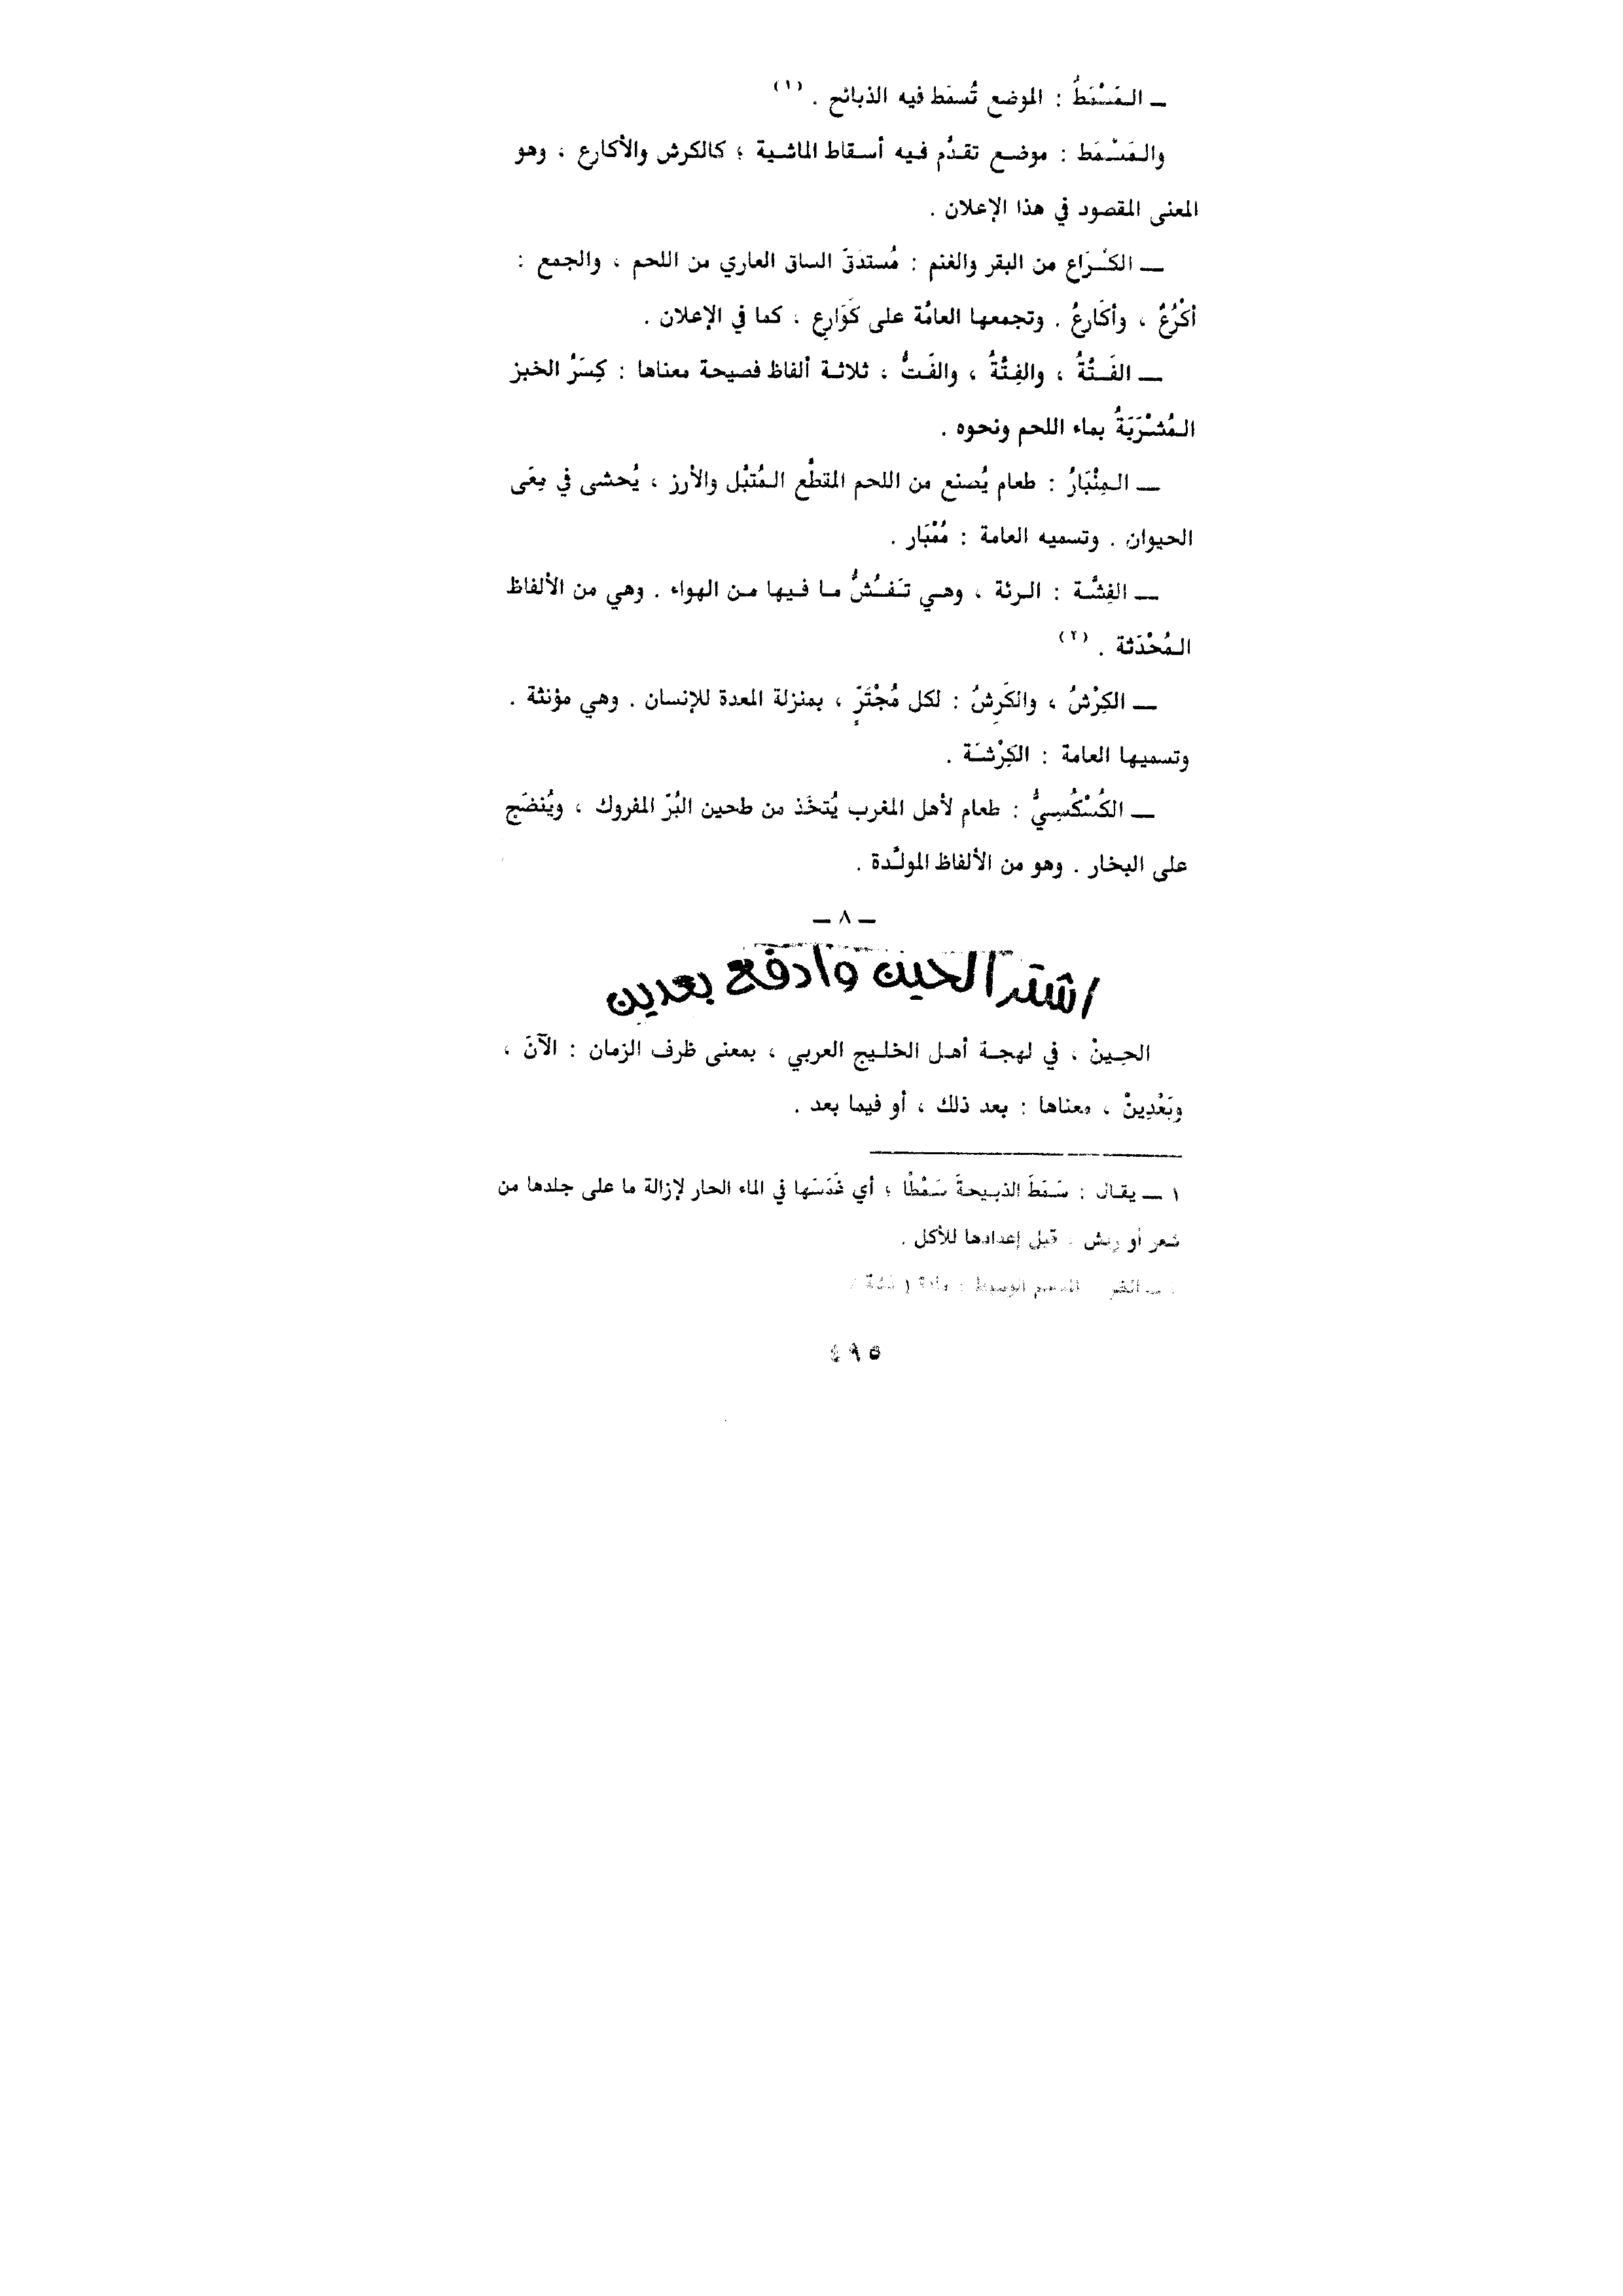 ــ المَسْمَطُ : الموضع تُسمَط فيه الذبائح . (١)
والمَسْمَط : موضع تقدَّم فيه أسقاط الماشية ؛ كالكرش والأكارع ، وهو
المعنى المقصود في هذا الإعلان .
ــ الكُرَاع من البقر والغنم : مُستدَقّ الساق العاري من اللحم ، والجمع :
أكْرُعٌ ، وأكَارعُ . وتجمعها العامَّة على كَوَارِع ، كما في الإعلان .
ــ الفَتَّةُ ، والفِتَّةُ ، والفَتُّ ، ثلاثة ألفاظ فصيحة معناها : كِسَرُ الخبز
المُشْرَبَةُ بماء اللحم ونحوه .
ــ المِنْبَارُ : طعام يُصنع من اللحم المقطَّع المُتبَّل والأرز ، يُحشى في مِعَى
الحيوان . وتسميه العامة : مُمْبَار .
ــ الفِشَّة : الرئة ، وهي تَفُشُّ ما فيها من الهواء . وهي من الألفاظ
المُحْدَثة . (٢)
ــ الكِرْشُ ، والكَرِشُ : لكل مُجْتَرٍّ ، بمنزلة المعدة للإنسان . وهي مؤنثة .
وتسميها العامة : الكِرْشَة .
ــ الكُسْكُسِيُّ : طعام لأهل المغرب يُتخَذ من طحين البُرّ المفروك ، ويُنضَج
على البخار . وهو من الألفاظ المولَّدة .
ــ ٨ ــ
اشتر الحين وادفع بعدين
الحِينْ ، في لهجة أهل الخليج العربي ، بمعنى ظرف الزمان : الآنَ ،
وبَعْدِينْ ، معناها : بعد ذلك ، أو فيما بعد .
١ ــ يقال : سَمَطَ الذبيحةَ سَمْطًا ؛ أي غَمَسَها في الماء الحار لإزالة ما على جلدها من
شعر أو ريش ، قبل إعدادها للأكل .
ــ انظر المعجم الوسيط : مادة ( فشّ )
٤٩٥